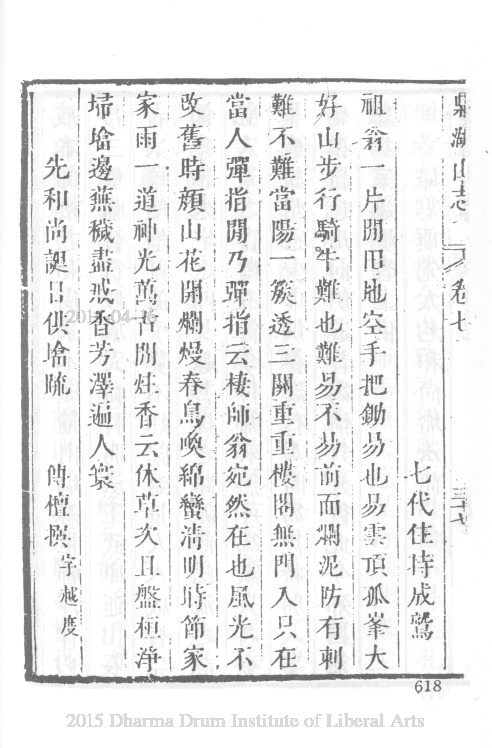 鼎湖山志 卷七 三十六
七代住持成鷲
祖翁一片閒田地空手把鋤易也易雲頂孤峯大
好山步行騎牛難也難易不易前而爛泥防有刺
難不難當陽一簇透三關重重樓閣無門入只在
當人彈指閒乃彈指云棲師翁宛然在也風光不
改舊時顏山花開爛熳春鳥喚綿蠻淸明時節家
家雨一道神光萬古閒炷香云休草次且盤桓淨
埽墖邊蕪穢盡戒香芳澤遍人寰
先和尚誕日供墖䟽 傅檀撰 字越度
618
2015 Dharma Drum Institute of Liberal Arts